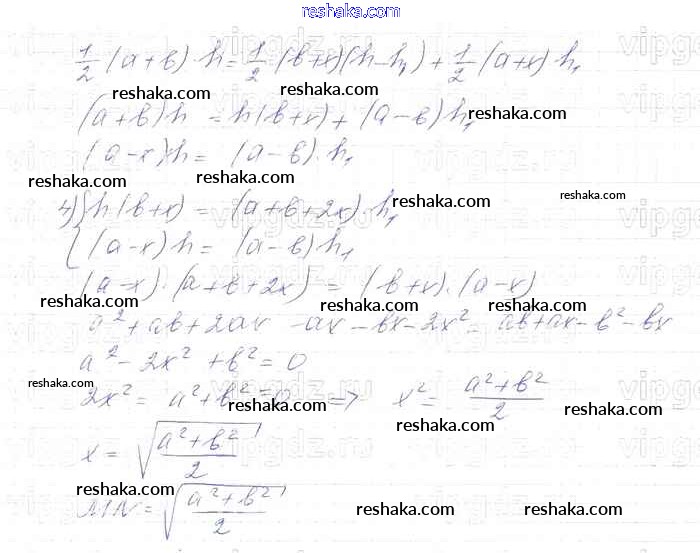 reshaka.com
1/2 (a+в)·h = 1/2 (в+x)(h-h₁) + 1/2 (a+x)·h₁
reshaka.com reshaka.com
(a+в)h = h(в+x) + (a-в)h₁
reshaka.com
(a-x)·h = (a-в)·h₁
reshaka.com reshaka.com
4) { h(в+x) = (a+в+2x)·h₁
reshaka.com
(a-x)h = (a-в)h₁
reshaka.com reshaka.com
(a-x)·(a+в+2x) = (в+x)·(a-x)
reshaka.com reshaka.com reshaka.com
a²+aв+2ax-ax-вx-2x² = aв+ax-в²-вx
a²-2x²+в²=0
reshaka.com
2x² = a²+в²=0 => x² = (a²+в²)/2
reshaka.com reshaka.com
reshaka.com
x = √((a²+в²)/2)
reshaka.com reshaka.com
MN = √((a²+в²)/2)
reshaka.com reshaka.com reshaka.com